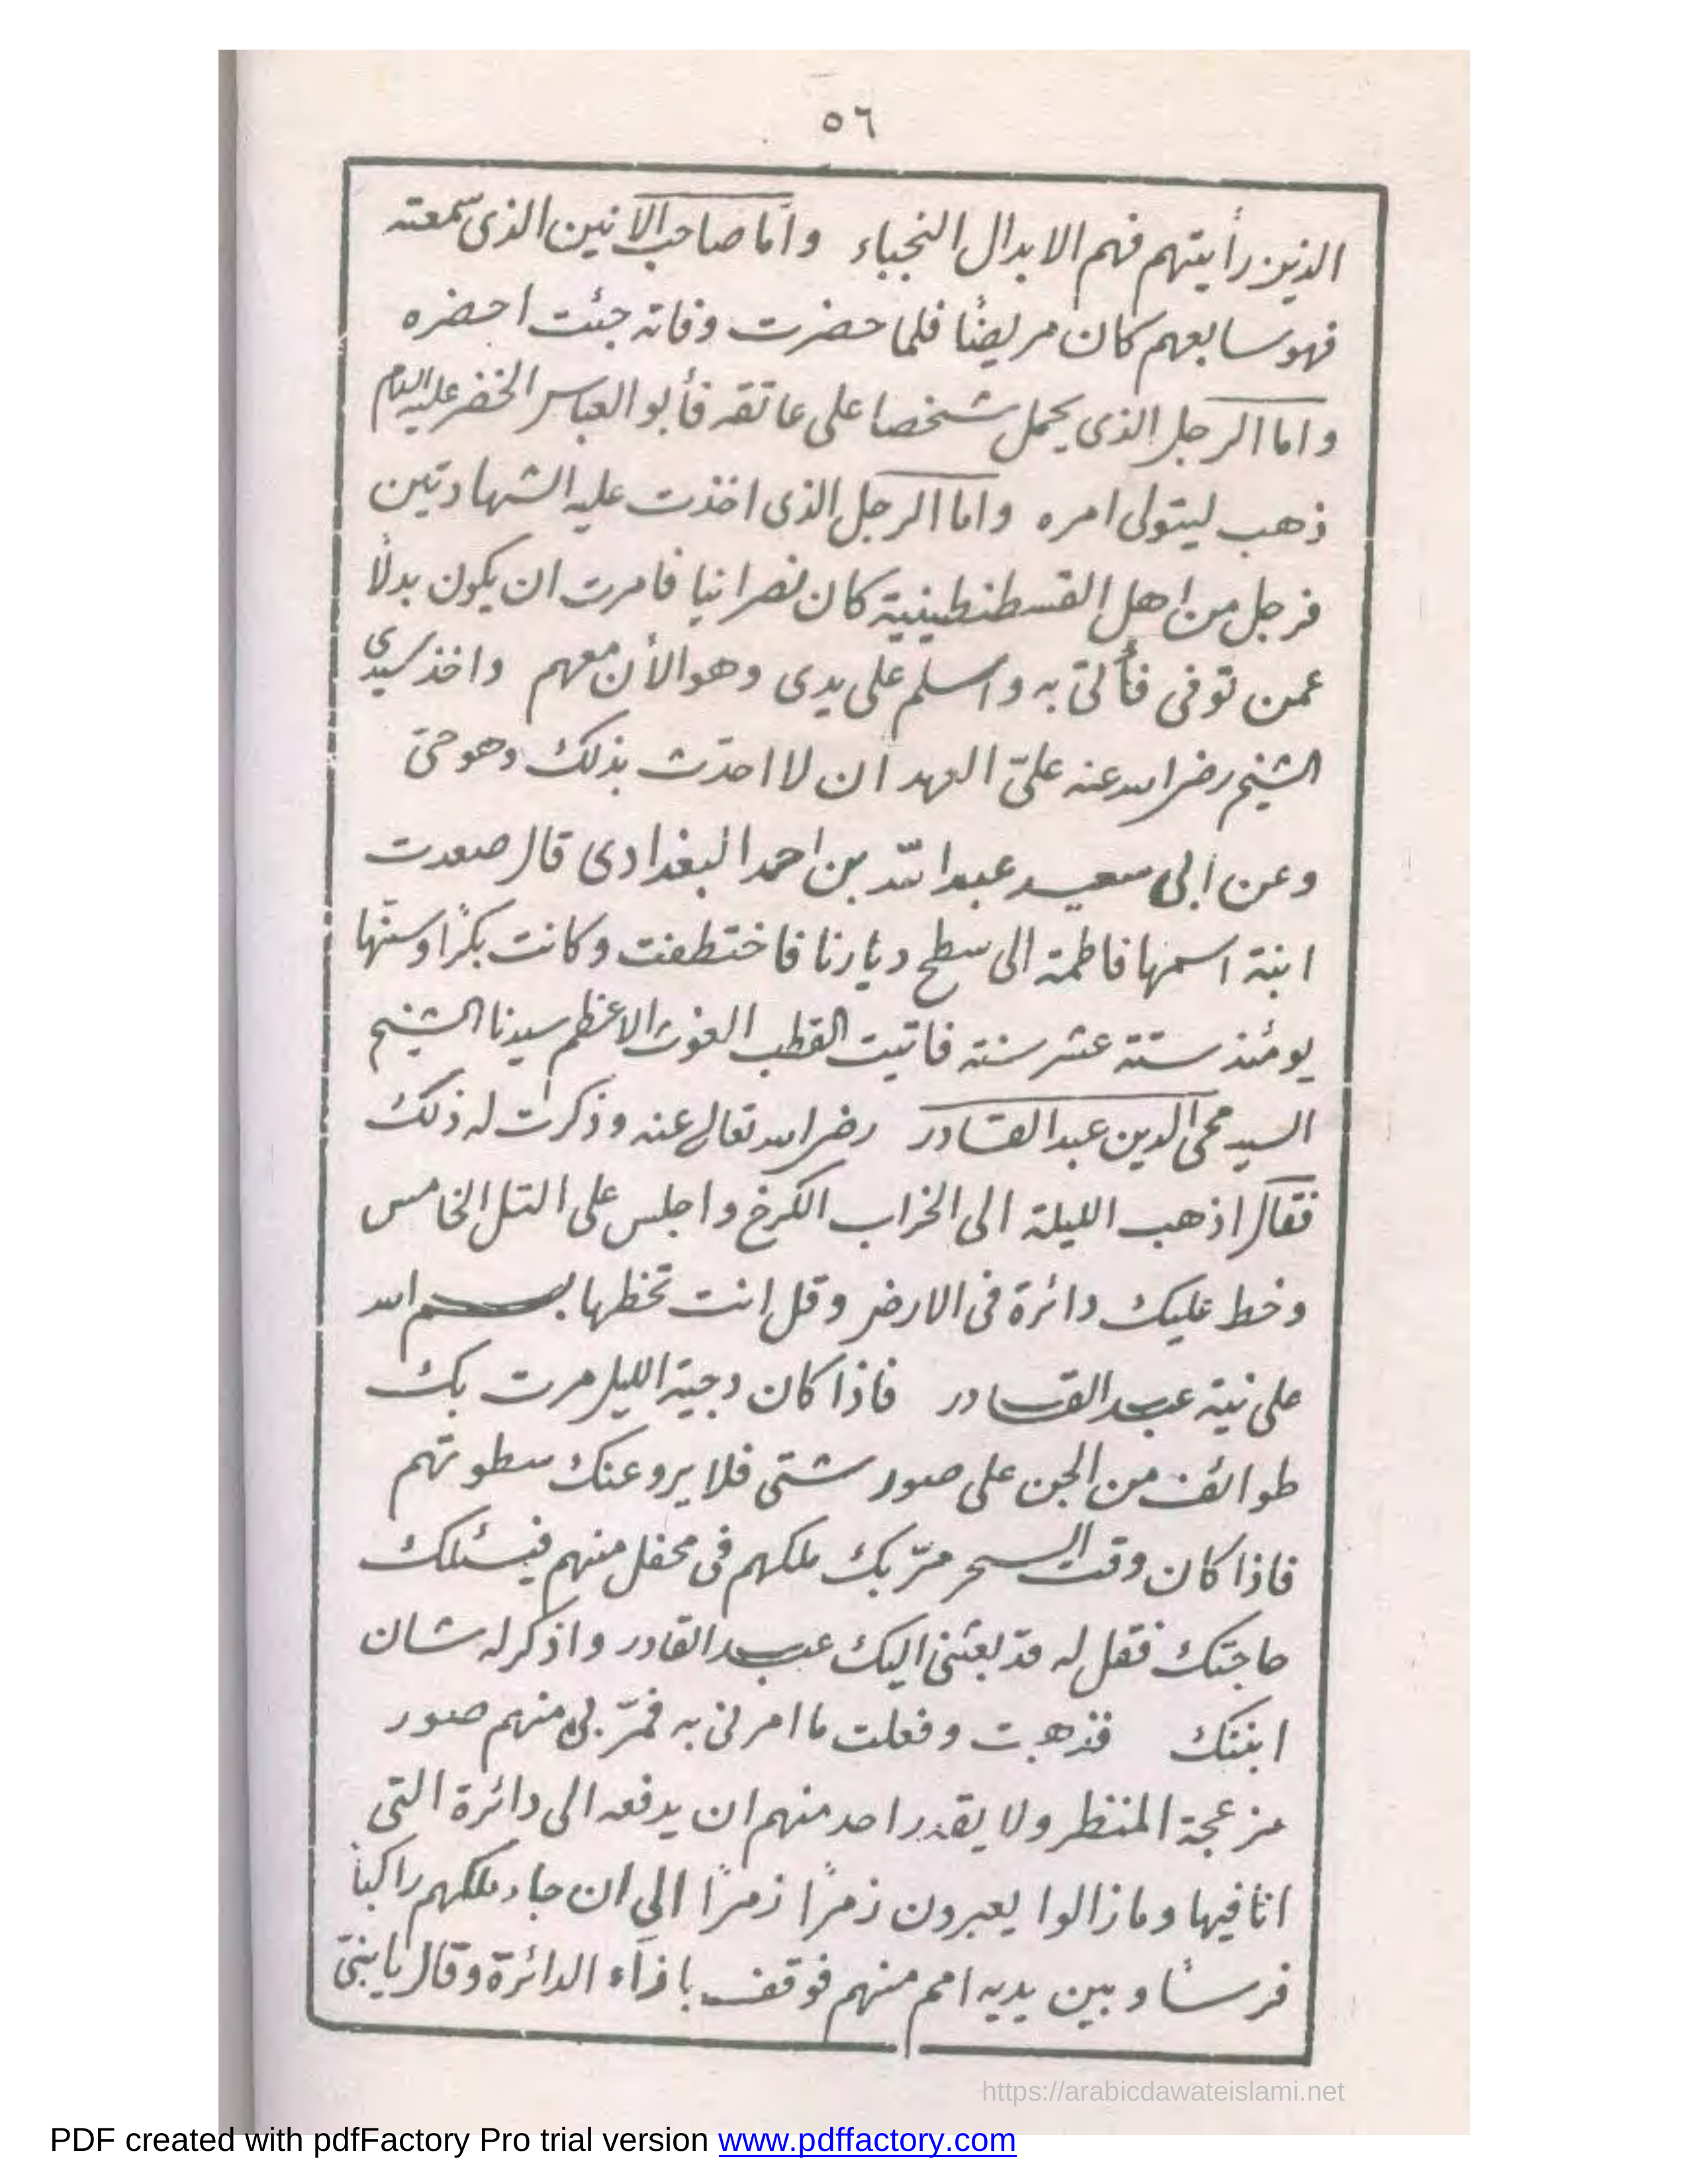 ٥٦
الذين رأيتهم فهم الابدال النجباء وامّا صاحب الانين الذى سمعته
فهو سابعهم كان مريضًا فلما حضرت وفاته جئت احضره
واما الرجل الذى يحمل شخصا على عاتقه فأبو العباس الخضر عليه السلام
ذهب ليتولى امره واما الرجل الذى اخذت عليه الشهادتين
فرجل من اهل القسطنطينية كان نصرانيا فامرت ان يكون بدلًا
عمن توفى فأتى به واسلم على يدى وهو الأن معهم واخذ سيدى
الشيخ رضى الله عنه علىّ العهد ان لا احدّث بذلك وهو حىّ
وعن ابى سعيد عبد الله بن احمد البغدادى قال صعدت
ابنة اسمها فاطمة الى سطح ديارنا فاختطفت وكانت بكرًا وسنّها
يومئذ ستة عشر سنة فاتيت القطب الغوث الاعظم سيدنا الشيخ
السيد محى الدين عبد القادر رضى الله تعالى عنه وذكرت له ذلك
فقال اذهب الليلة الى الخراب الكرخ واجلس على التل الخامس
وخط عليك دائرة فى الارض وقل انت تخطها بسم الله
على نية عبد القادر فاذا كان دجية الليل مرت بك
طوائف من الجن على صور شتى فلا يروعنك سطوتهم
فاذا كان وقت السحر مرّ بك ملكهم فى محفل منهم فيسئلك
حاجتك فقل له قد بعثنى اليك عبد القادر واذكر له شان
ابنتك فذهبت وفعلت ما امرنى به فمرّ بى منهم صور
مزعجة المنظر ولا يقدر احد منهم ان يدفعه الى دائرة التى
انا فيها وما زالوا يعبرون زمرًا زمرًا الى ان جاء ملكهم راكبًا
فرسًا وبين يديه امم منهم فوقف باذآء الدائرة وقال يا بنىّ
https://arabicdawateislami.net
PDF created with pdfFactory Pro trial version www.pdffactory.com